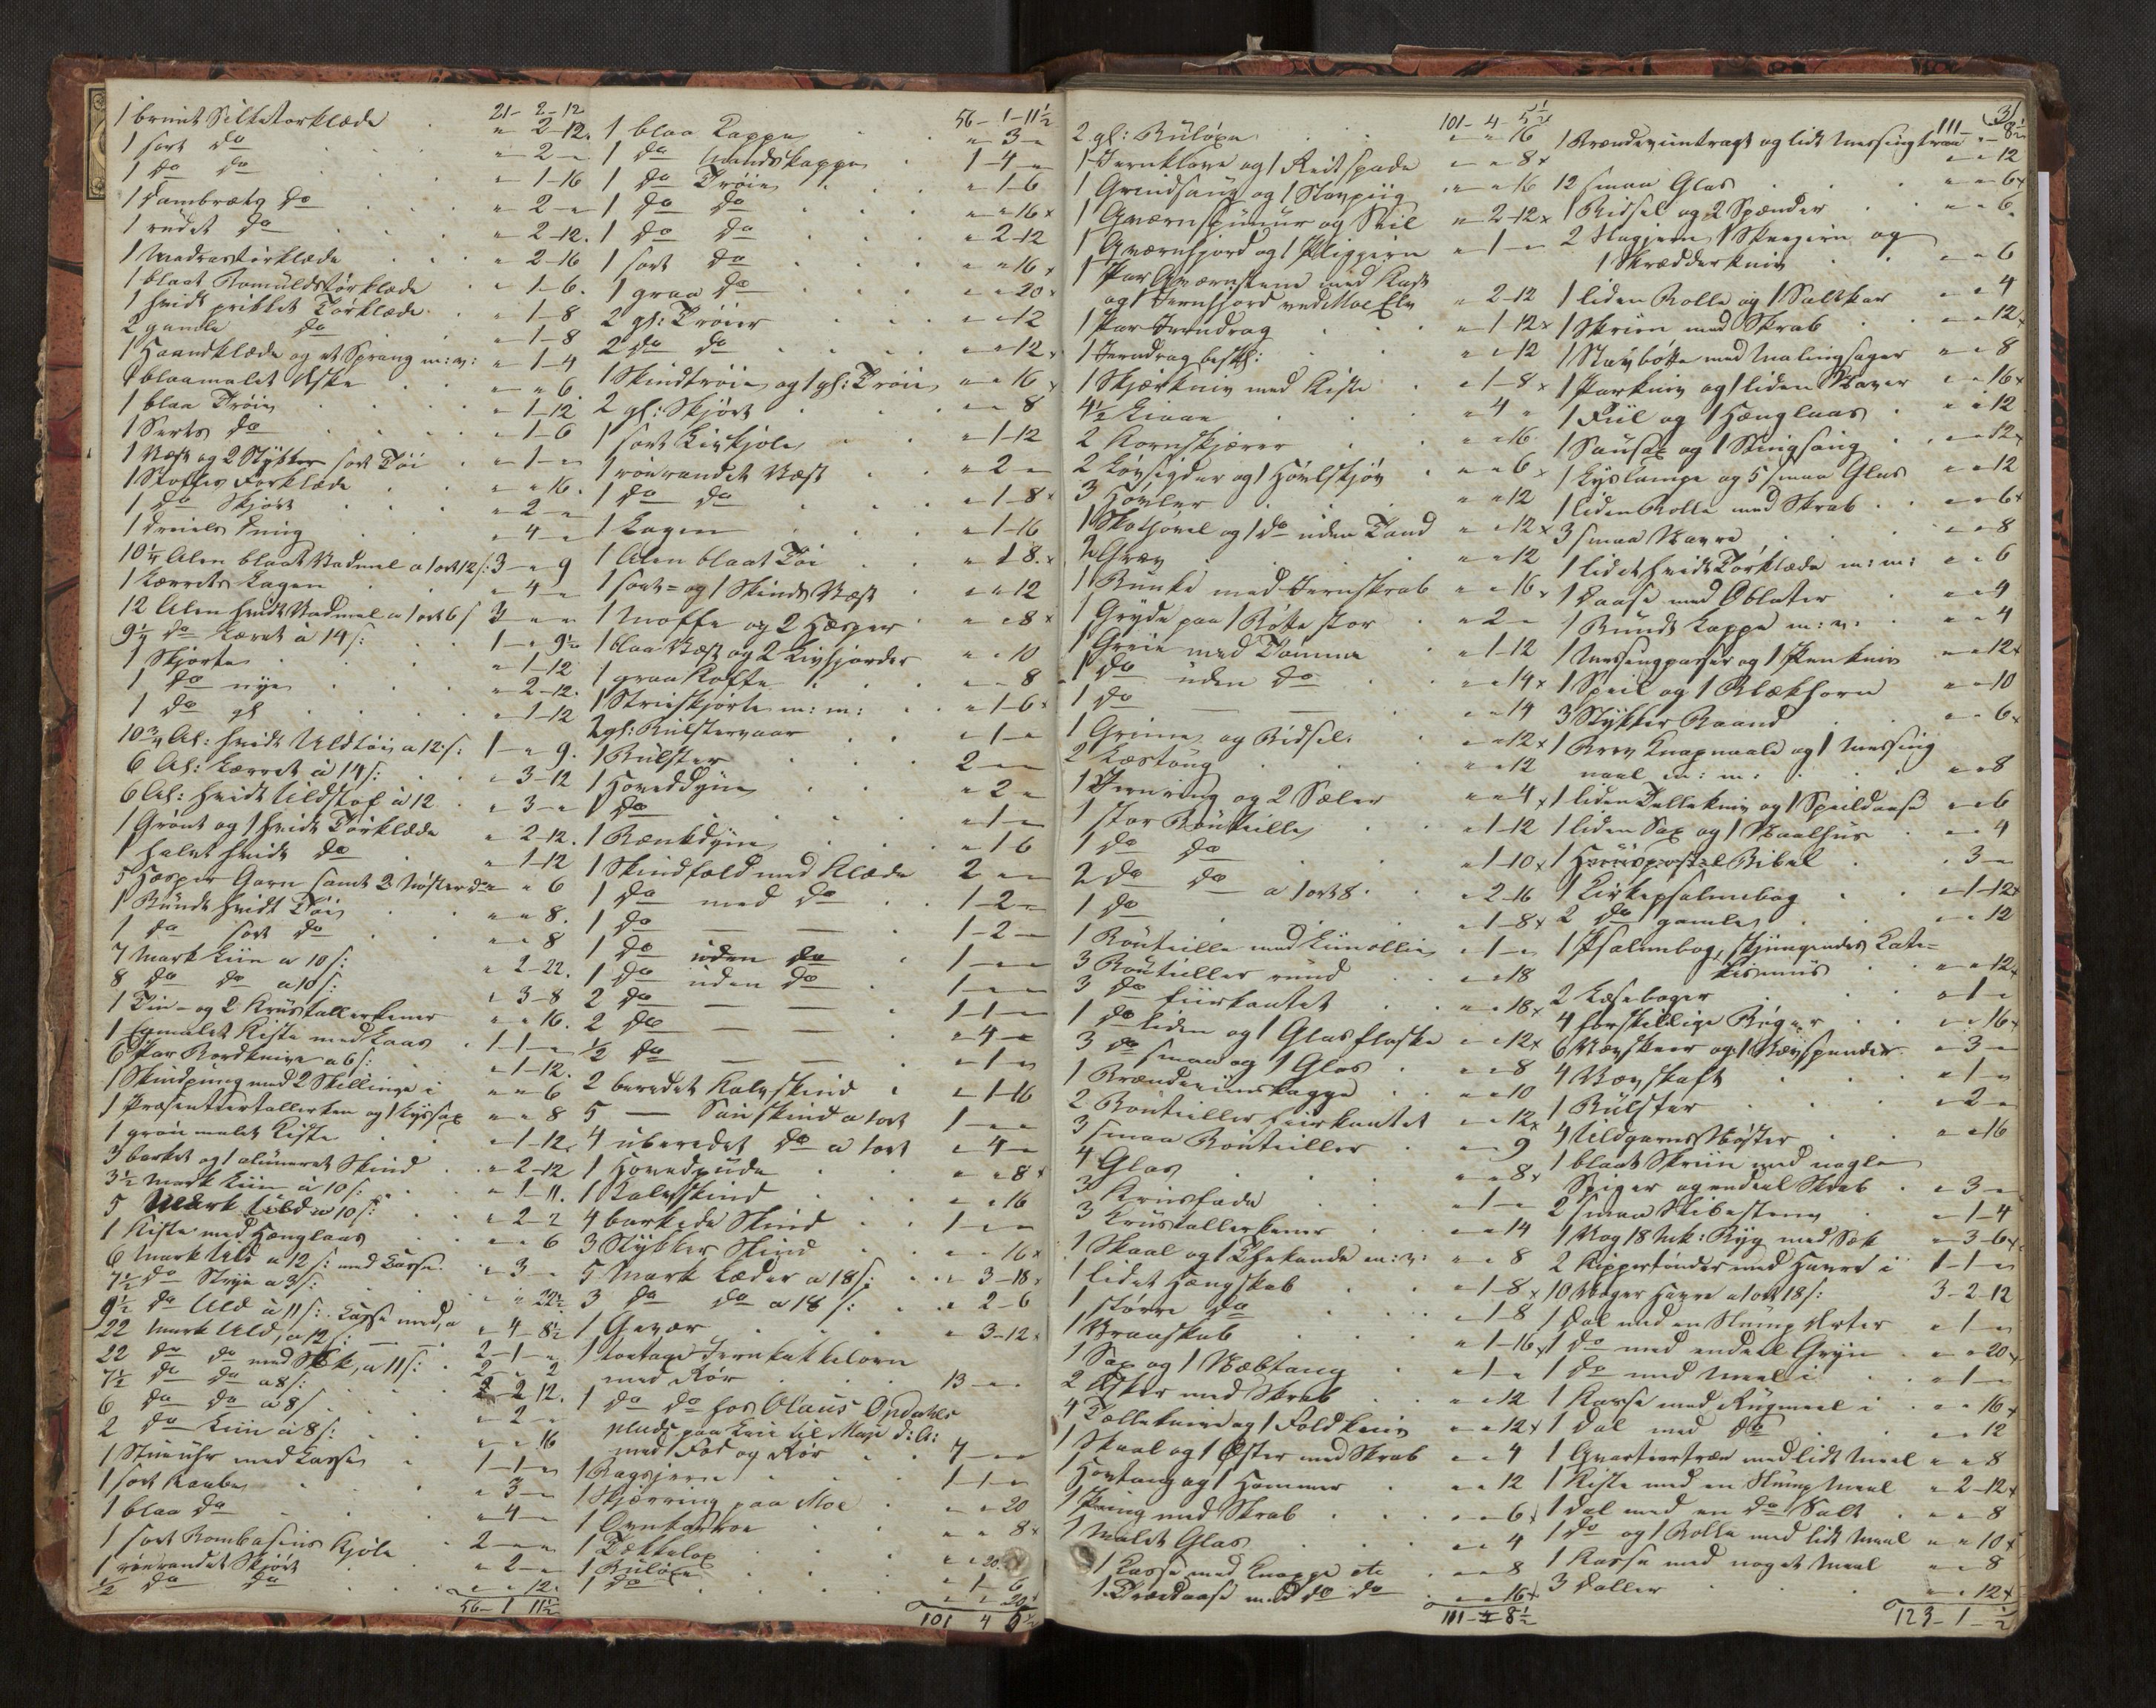 21- 2-12
1 bruunt Silketørklæde „ 2-12.
1 sort do „ 2 „
1 do do „ 1-16
1 Dambræts do „ 2 „
1 rudet do „ 2-12.
1 Madrastørklæde „ 2-16
1 blaat Bomuldstørklæde „ 1-6.
1 hvidt prikket Tørklæde „ 1-8
2 gamle do „ 1-8
1 Haandklæde og et Sprang m: v: „ 1-4
1 blaamalet Æske „ „ 6
1 blaa Trøie „ 1-12
1 Serts do „ 1-6
1 Væst og 2 Stykker sort Tøi „ 1 „
1 Stoffes Forklæde „ „ 16.
1 do Skjørt „ 2 „
1 Dreiels Dug „ 4 „
10¼ Alen blaat Vadmel a 1 ort 12 s: 3 „ 9
1 Lærrets Lagen „ 4 „
12 Alen hvidt Vadmel a 1 ort 6 s 3 „ „
9¼ do Lærret à 14 s: 1 „ 9½
1 Skjorte „ 1-12
1 do nye „ 2-12.
1 do gl „ 1-12
10¾ Al: hvidt Uldtøi a 12 s: 1 „ 9.
6 Al: Lærret à 14 s: „ 3-12
6 Al: hvidt Uldstof à 12 „ 3 „
1 Grønt og 1 hvidt Tørklæde „ 2-12.
1 halvt hvidt do „ 1-12
5 Hesper Garn samt 2 Nøster do „ „ 6
1 Bundt hvidt Tøi „ „ 8.
1 do sort do „ „ 8
7 Mark Liin a 10 s: „ 2-22.
8 do do a 10 s: „ 3-8
1 Tin- og 2 Kruustallerkener „ „ 16.
1 Umalet Kiste med Laas 1-1 „
6 Par Bordknive a 6 s: „ 1-12.
1 Skindpung med 2 Skillinge i „ „ 6
1 Præsenteertallerken og 1 Lyssax „ „ 8
1 grøn malet Kiste „ 1-12.
3 barket og 1 aluneret Skind „ 2-12
3½ Mark Liin à 10 s: „ 1-11.
5 Mark Uld a 10 s: „ 2-2
1 Kiste med Hænglaas „ „ 6
6 Mark Uld a 12 s: med Kasse „ 3 „
7½ do Strye a 3 s: „ „ 22½
9½ do Uld à 11 s: Kasse med, a „ 4-8½
22 Mark Uld, a 12 s: 2-1 „
22 do do med Sæk, a 11 s: 2 „ 2
7½ do do a 8 s: 2 12.
6 do do a 8 s „ 2 „
2 do Liin à 8 s: „ „ 16
1 Stueuhr med Kasse 1-1 „
1 sort Kaabe „ 3 „
1 blaa do „ 4 „
1 sort Bombasins Kjole 2 „ „
1 rødrandet Skjørt „ 2 „
½ do do „ „ 12.
56- 1 11½
56-1-11½
1 blaa Kappe „ 3 „
1 do Mandskappe 1-4 „
1 do Trøie „ 1-6
1 do do „ „ 16 x
1 do do „ 2-12
1 sort do „ „ 16 x
1 graa do „ „ 20 x
2 gl: Trøier „ „ 12
2 do do „ „ 12 x
1 Skindtrøie og 1 gl: Trøie „ „ 16 x
2 gl: Skjørt „ „ 8
1 sort Livkjole „ 1-12
1 rødrandet Væst „ 2 „
1 do do „ 1-8 x
1 Lagen „ 1-16
1 Alen blaat Tøi „ 1 8 x
1 sort- og 1 Skinds Væst „ „ 12
1 Moffe og 2 Hesper „ „ 8 x
1 blaa Væst og 2 Livgjorder „ „ 10
1 graa Kofte „ „ 8
1 Strieskjorte m: m: „ 1-6 x
2 gl: Bulstervaar „ 1 „
1 Bulster 2 „ „
1 Hoveddyne „ 2 „
1 do „ 1 „
1 Bænkdyne „ 1 6
1 Skindfæld med Klæde 2 „ „
1 do med do 1-2 „
1 do — — 1-2 „
1 do uden do 1 „ „
1 do uden do 1 „ „
2 do — — 1-1 „
2 do — — „ 4 „
½ do — — „ 1 „
2 beredet Kalvskind „ 1-16
5 — Sauskind a 1 ort 1 „ „
4 uberedet do a 1 ort „ 4 „
1 Hovedpude „ „ 8 x
1 Kalvskind „ „ 16
4 barkede Skind 1 „ „
3 Stykker Skind „ „ 16 x
5 Mark Læder a 18 s: „ 3-18 x
3 do do a 18 s: „ 2-6
1 Gevær „ 3-12 x
1 toetages Jernkakkelovn
med Rør 13 „ „
1 do do hos Olaus Opdahls
Plads paa Leie til Maji d: A:
med Fod og Rør 7 „ „
1 Bagsjern 1-1 „
1 Skjærring paa Moe „ „ 20
1 „ „ 8 x
1 „ „ 20
1 Buløxe „ 1 6
1 do „ „ 20 x
101 4 5½
101-4-5½
2 gl: Buløxe „ „ 16
1 Jernklove og 1 Reitspade „ „ 8 x
1 Grindsaug og 1 „ „ 16
1 og Seil „ 2-12 x
1 Qværnfjord og 1 „ 1 „
1 Par Qværnstene med Kar
og 1 Jernfjord ved Moe Elv „ 2-12
1 Par Jerndrag „ 1 12 x
1 Jerndrag beskj: „ „ 12
1 Skjærkniv med Kiste „ 1-8 x
4½ „ 4 „
2 Kornskjærer „ „ 16
2 Løvsigder og 1 „ „ 6 x
3 Høvler „ „ 12
1 og 1 do uden Tand „ „ 12 x
2 Grev „ „ 12
1 Bunke med Jernskrab „ „ 16 x
1 Gryde paa 1 Bøtte stor „ 2 „
1 Greie med Tømme „ 1-12
1 do uden do „ „ 14 x
1 do — — „ „ 14
1 Grime og Bidsel „ „ 12 x
2 „ „ 12
1 Jernring og 2 Sæler „ „ 4 x
1 stor Bouteille „ 1-12
1 do do „ 1-10 x
2 do do a 1 ort 8 „ 2-16
1 do „ 1-8 x
1 Bouteille med Liinollie „ 1 „
3 Bouteiller rund „ „ 18
3 do fiirkantet „ „ 18 x
1 do liden og 1 Glasflaske „ „ 12 x
3 do smaa og 1 Glas „ „ 8
1 Brændeviinskagge „ „ 10
2 Bouteiller fiirkantet „ „ 12 x
3 smaa Bouteiller „ „ 9
4 Glas „ „ 8 x
3 Kruusfade „ 1 „
3 Kruustallerkener „ „ 14
1 Skaal og 1 Thekande m: v: „ „ 8
1 lidet Hængskab „ 1-8 x
1 større do „ 1-8
1 Vraaskab „ 1-16 x
1 Sax og 1 Næbtang „ 1 „
2 Æsker med Skrab „ „ 12
4 Tællekniver og 1 Foldkniv „ „ 12 x
1 Skaal og 1 Æster med Skrab „ „ 4
1 Hovtang og 1 Hammer „ „ 12
1 Pung med Skrab „ „ 6 x
1 malet Glas „ „ 4
1 Kasse med Knappe etc „ „ 8
1 Trædaase med do do „ „ 16 x
111- 8½
31
111- „ 8½
1 Brændeviintragt og lidt Messingtraa „ „ 12
12 smaa Glas „ „ 6 x
1 Bidsel og 2 Spænder „ „ 6
2 1 og
1 Skrædderkniv „ „ 6
1 liden Rolle og 1 Saltkar „ „ 4
1 Skriin med Skrab „ „ 12 x
1 Stavbøtte med Malingsager „ „ 8
1 Parkniv og 1 liden Naver „ „ 16 x
1 Fiil og 1 Hænglaas „ „ 12
1 Sausax og 1 Stingsaug „ „ 12 x
1 Lyslampe og 5 smaa Glas „ „ 12
1 liden Rolle med Skrab „ „ 6 x
3 smaa Navre „ „ 8
1 lidet hvidt Tørklæde m: m: „ „ 6
1 Daase med Oblater „ „ 4
1 Bundt Lappe m: v: „ „ 4
1 Messingpasser og 1 Penkniv „ „ 12 x
1 Speil og 1 Blækhorn „ „ 10
3 Stykker Baand „ „ 6 x
1 Brev Knapnaale og 1 Messing
naal m: m: „ „ 8
1 liden Tællekniv og 1 Speildaase „ „ 6
1 liden Sax og 1 Naalhuus „ „ 4
1 Huuspostel Bibel „ 3 „
1 Kirkepsalmebog „ 1-12 x
2 do gamle „ „ 12
1 Psalmebog, Katte-
kismus „ „ 12 x
2 Læsebøger „ 1 „
4 forskillige Bøger „ „ 16 x
6 Vævskeer og 1 Vævspænder „ 3 „
4 Vævskaft „ 1 „
1 Bulster „ 2 „
4 Uldgarnsnøster „ „ 16
1 blaat Skriin med nogle
Spiger og endeel Skrab „ 3 „
2 smaa Slibestene „ 1-4
1 Vog 18 Mk: Byg med Sæk „ 3-6 x
2 Kippertønder med Havre i 1-1 „
10 Voger Havre a 1 ort 18 s: 3-2-12
1 Dal med en Slump Erter „ 1 „
1 do med endeel Gryn „ „ 20 x
1 do med Meel i „ 1 „
1 Kasse med Rugmeel i „ „ 16 x
1 Dal med do „ „ 12
1 Qvarteertræ med lidt Meel „ „ 8
1 Kiste med en Slump Meel „ 2-12 x
1 Dal med en do Salt „ „ 8
1 do og 1 Rolle med lidt Meel „ „ 10 x
1 Kasse med noget Meel „ „ 8
3 Daller „ „ 12 x
123- 1 -½